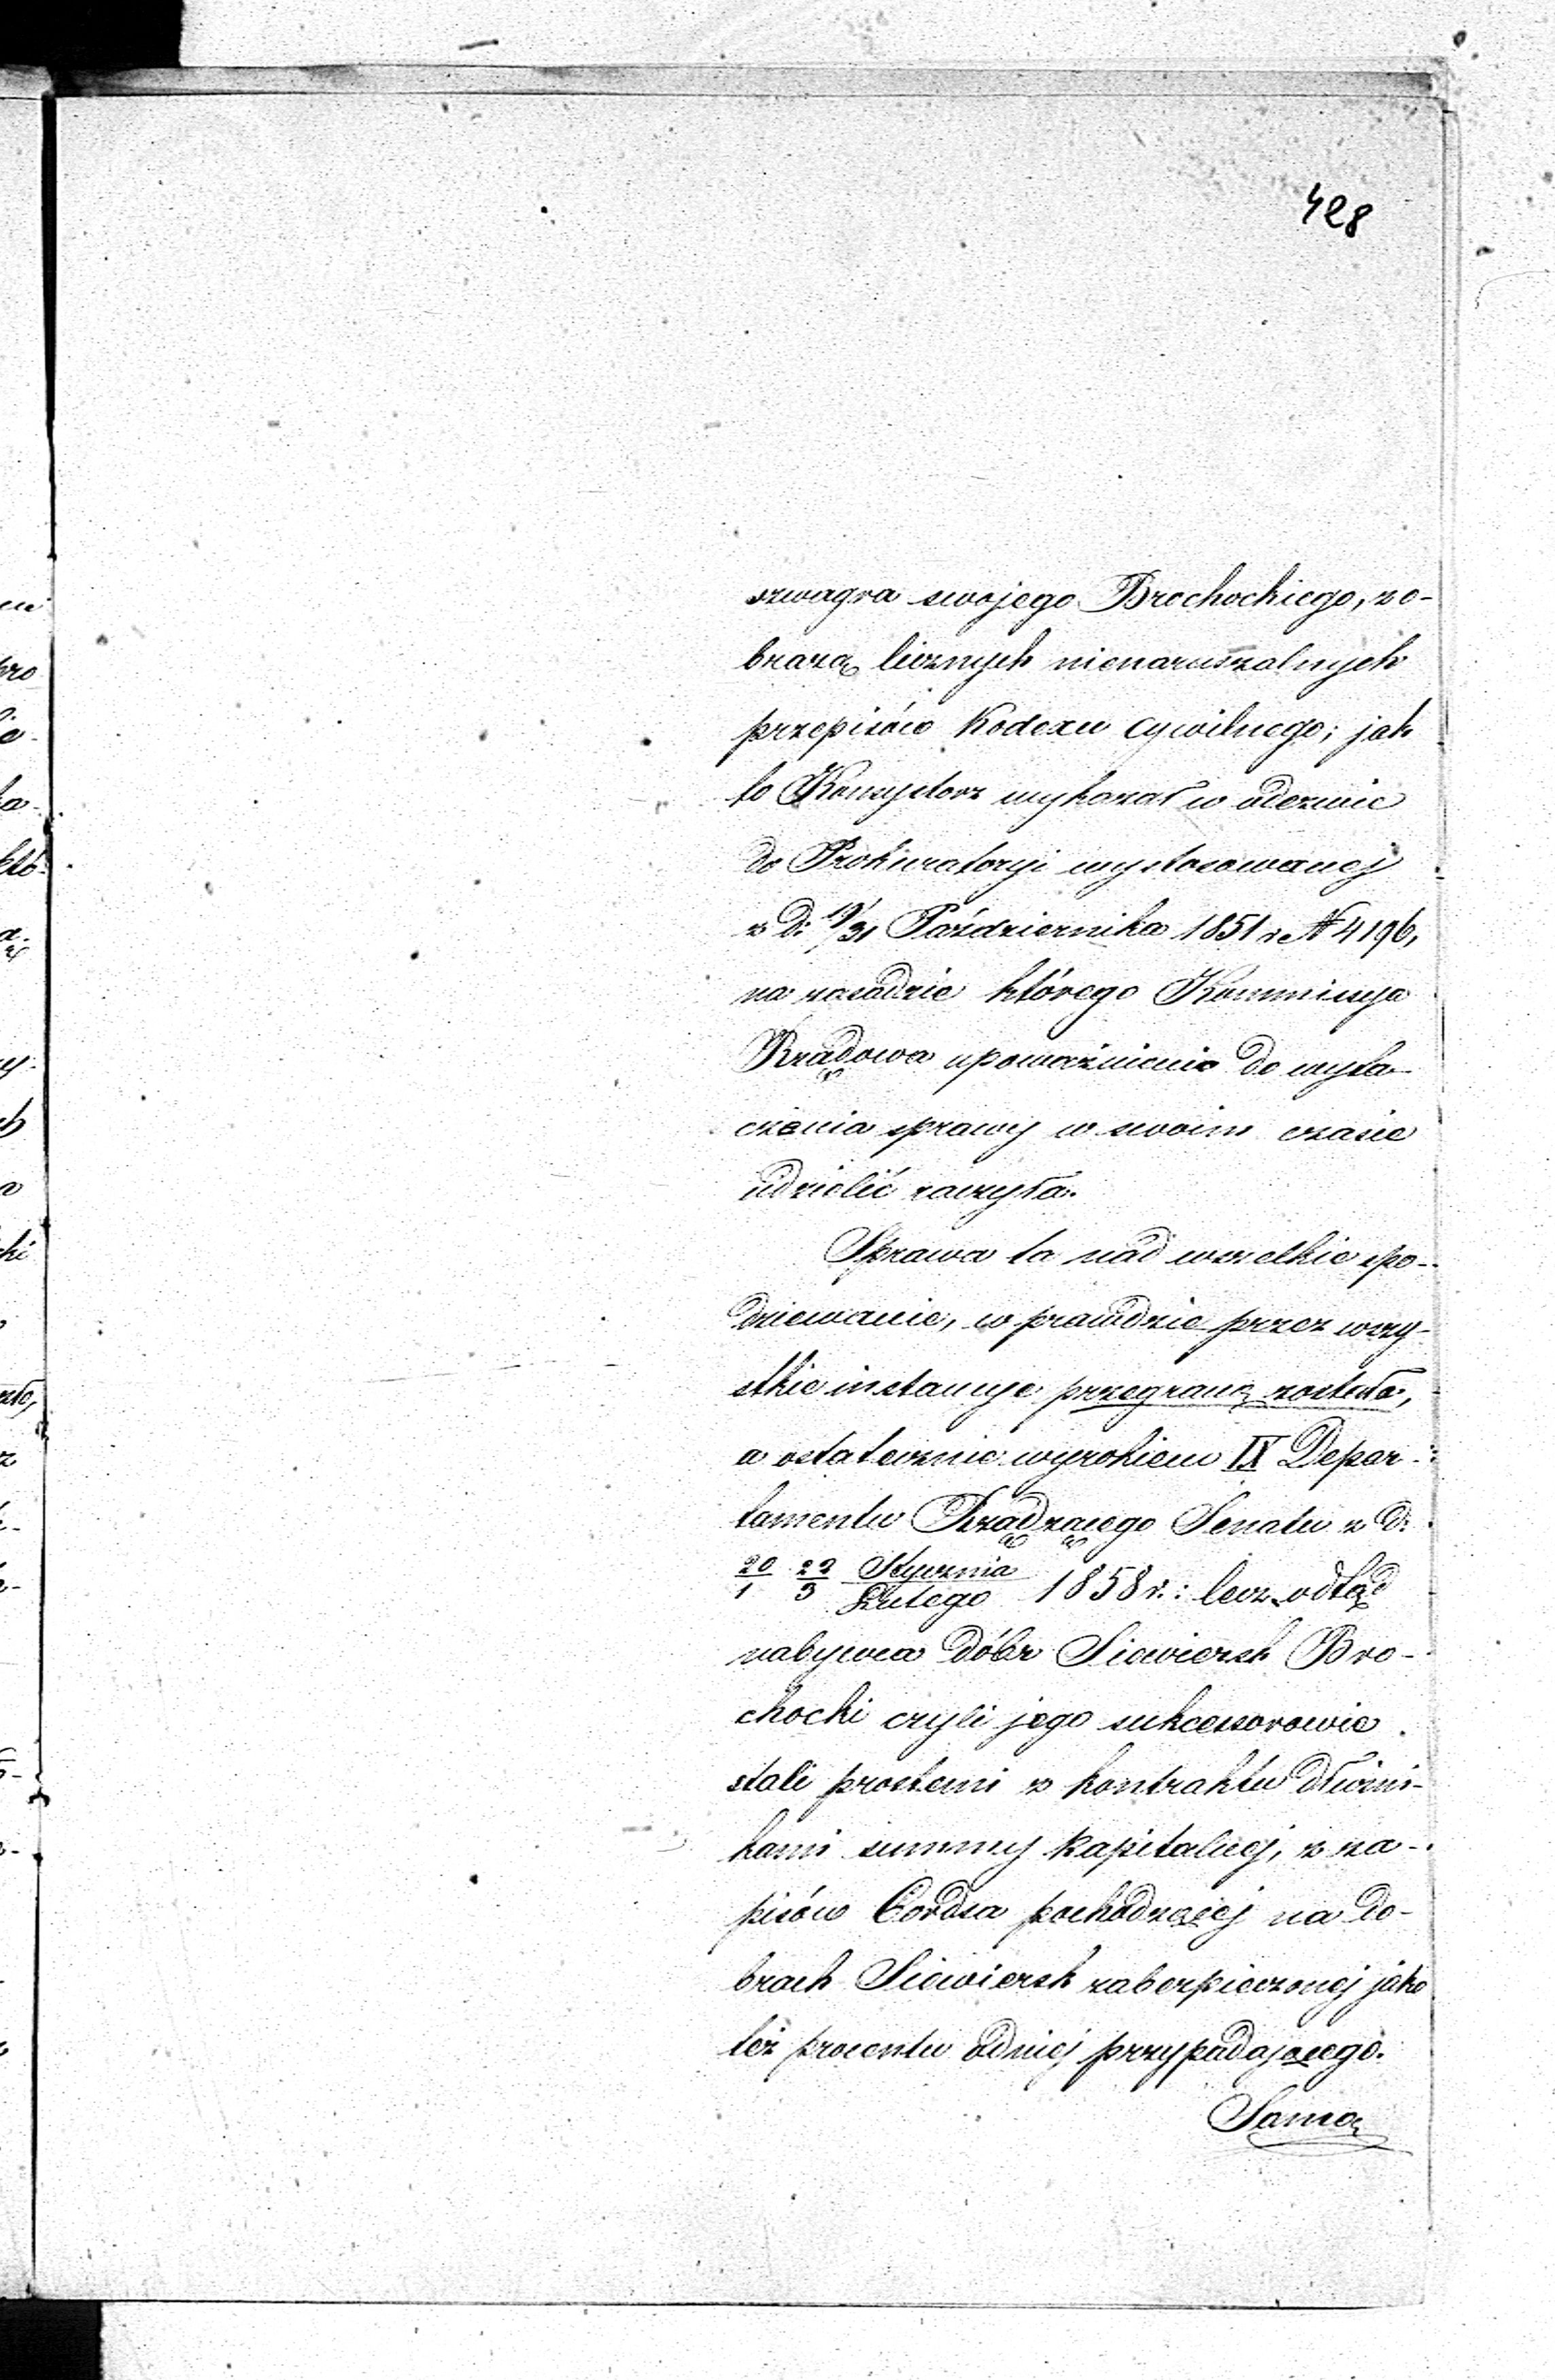 428
szwagra swojego Brochockiego, z o-
brazą licznych nienaruszalnych
przepisów Kodexu cywilnego; jak
to Konsystorz wykazał w odezwie
do Prokuratoryi wystosowanej
z d: 19/31 Października 1851 r N 4196,
na zasadzie którego Kommissya
Rządowa upoważnienie do wyta-
czenia sprawy w swoim czasie
udzielić raczyła.
Sprawa ta nad wszelkie spo-
dziewanie, w prawdzie przez wszy-
stkie instancye przegraną została,
a ostatecznie wyrokiem IX Depar-
tamentu Rządzącego Senatu z d:
20/1 22/3 Stycznia/Lutego 1858 r.: lecz odtąd
nabywca dóbr Siewiersk Bro-
chocki czyli jego sukcessorowie
stali prostemi z kontraktu dłużni-
kami summy kapitalnej, z za-
pisów Cordsa pochodzącej na do-
brach Siewiersk zabezpieczonej jako
też procentu od niej przypadającego.
Samą